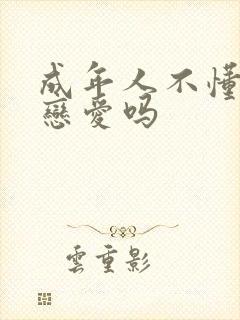 成年人不懂
戀愛吗
雲重影